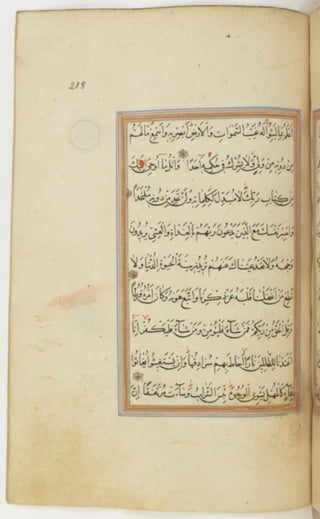 218
اعلم بما لبثوا له غيب السموات والارض ابصر به واسمع ما لهم
من دونه من ولي ولا يشرك في حكمه احدا واتل ما اوحي اليك
من كتاب ربك لا مبدل لكلماته ولن تجد من دونه ملتحدا
واصبر نفسك مع الذين يدعون ربهم بالغداوة والعشي يريدون
وجهه ولا تعد عيناك عنهم تريد زينة الحيوة الدنيا ولا
تطع من اغفلنا قلبه عن ذكرنا واتبع هويه وكان امره فرطا
وقل الحق من ربكم فمن شاء فليؤمن ومن شاء فليكفر انا
اعتدنا للظالمين نارا احاط بهم سرادقها وان يستغيثوا يغاثوا
بماء كالمهل يشوي الوجوه بئس الشراب وساءت مرتفقا ان